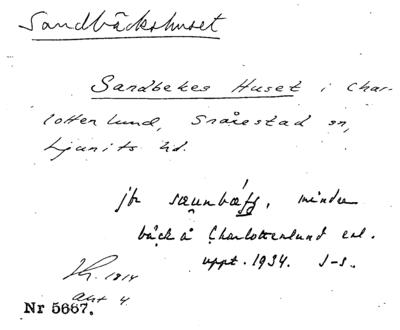 Sandbäckshuset
Sandbekes Huset i Char-
lottenlund, Snårestad sn,
Ljunits hd.
jfr saunbäkk, mindre
bäck å Charlottenlund enl.
uppt. 1934. J-s.
1814
akt 4
Nr 5667.